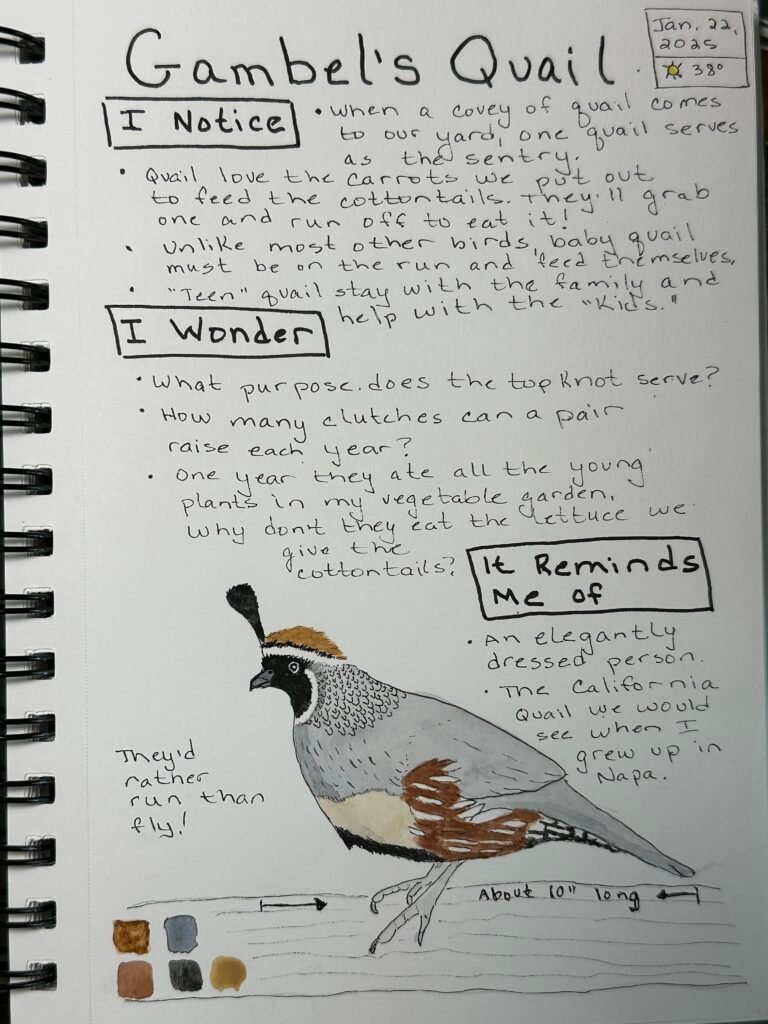 Gambel's Quail
Jan. 22,
2025
38°
I Notice
• When a covey of quail comes
to our yard, one quail serves
as the sentry.
• Quail love the carrots we put out
to feed the cottontails. They'll grab
one and run off to eat it!
• Unlike most other birds, baby quail
must be on the run and feed themselves.
• "Teen" quail stay with the family and
help with the "Kids."
I Wonder
• What purpose does the top Knot serve?
• How many clutches can a pair
raise each year?
• One year they ate all the young
plants in my vegetable garden,
why don't they eat the lettuce we
give the
cottontails?
It Reminds
Me of
• An elegantly
dressed person.
• The California
Quail we would
see when I
grew up in
Napa.
They'd
rather
run than
fly!
About 10" long